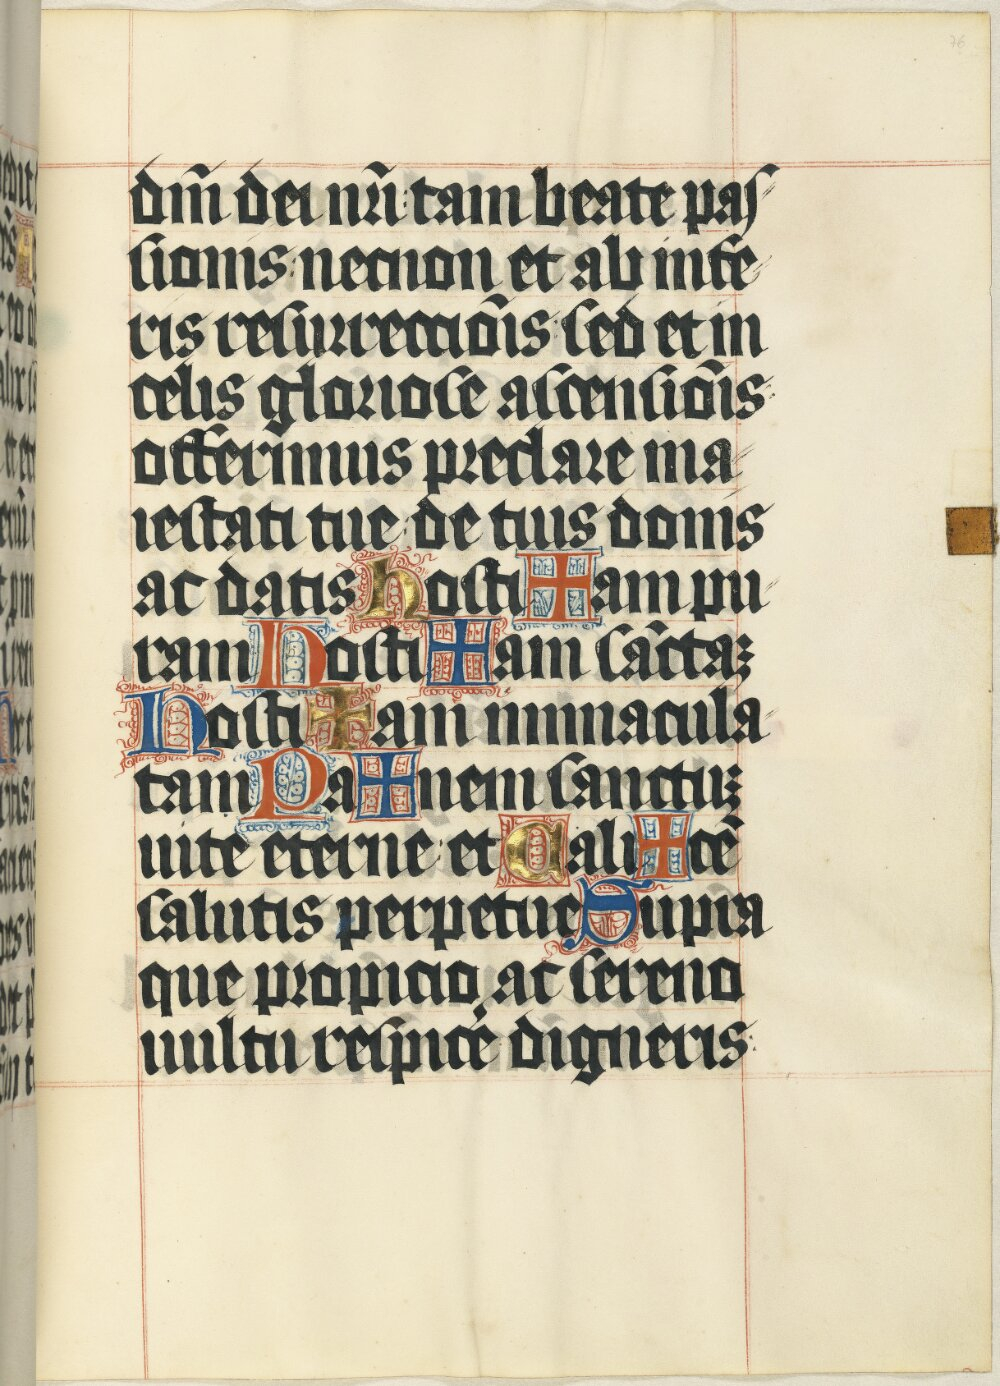 dñi dei nr̃i: tam beate pas
sionis: necnon et ab infe
ris resurrectiõis: sed et in
celis gloriose ascensiõis:
offerimus preclare ma
iestati tue: de tuis donis
ac datis hosti✠am pu
ram Hosti✠am sãctaꝫ
Hosti✠am immacula
tam Pa✠nem sanctuꝫ
uite eterne: et Cali✠cẽ
salutis perpetue Supra
que propicio, ac sereno
uultu respicẽ digneris:
76